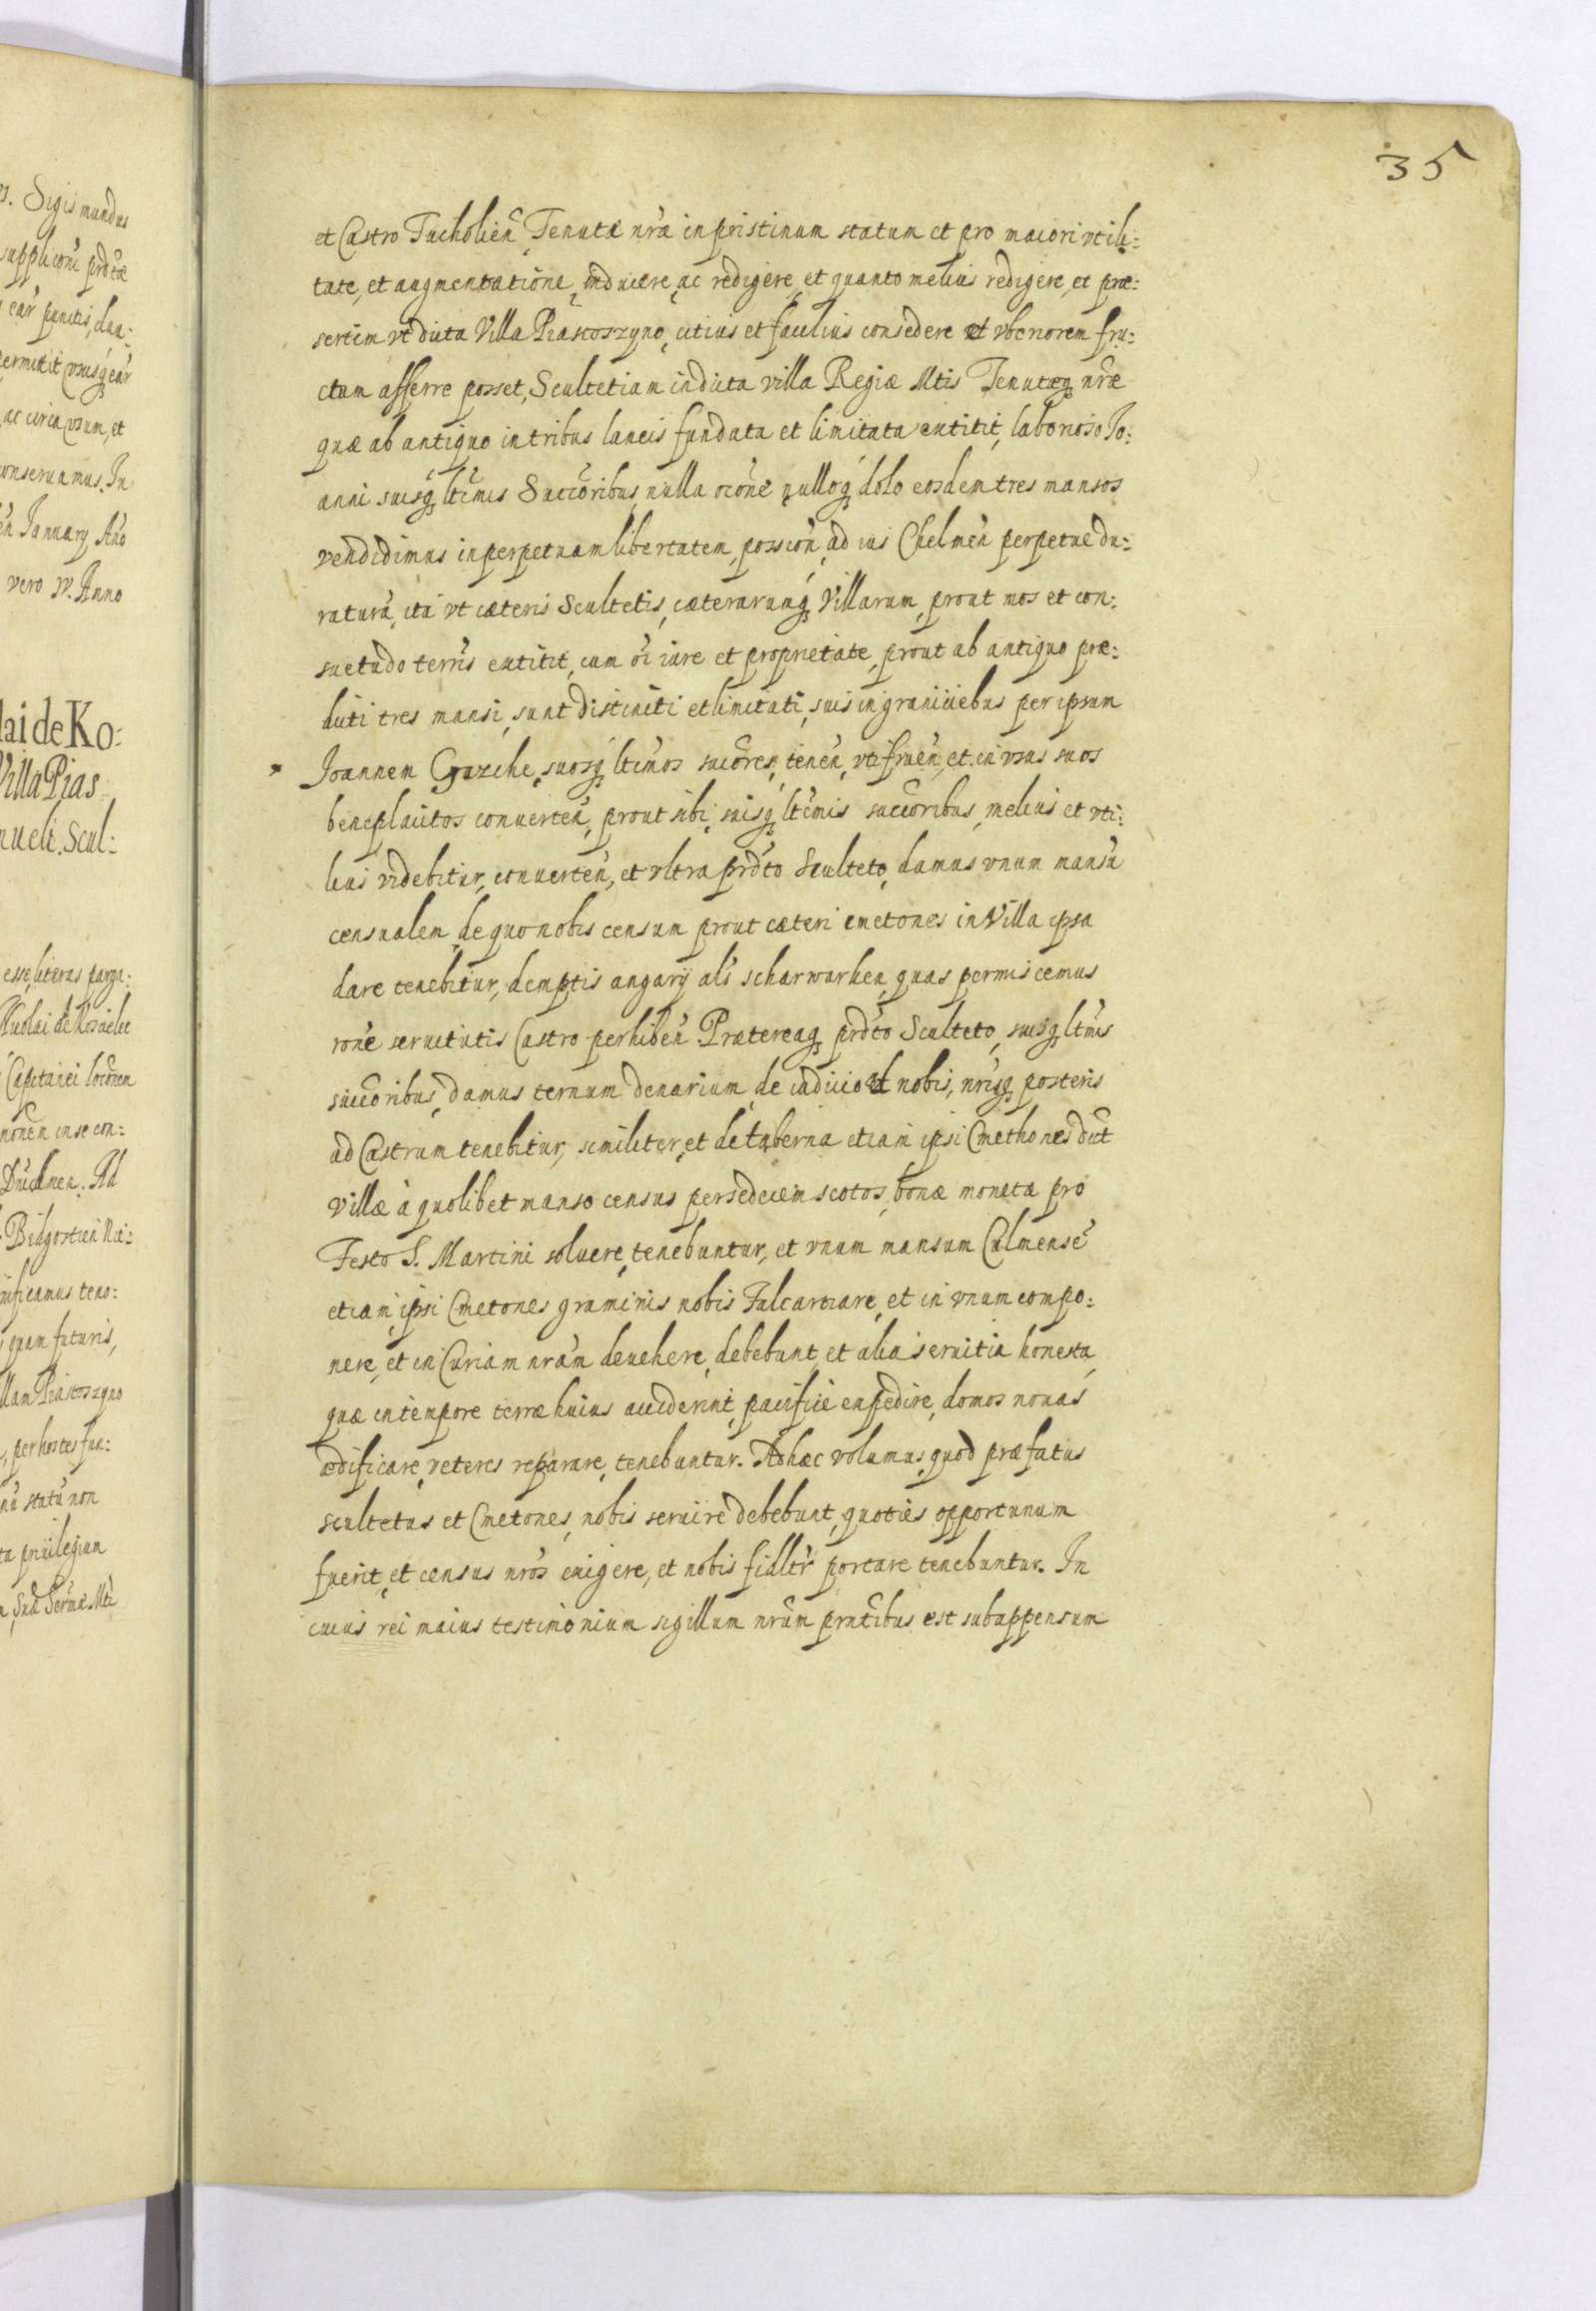 35
et Castro Tucholień Tenutæ nr̃a in pristinum statum et pro maiori vtili:
tate, et augmentatione, inducere, ac redigere, et quanto melius redigere, et præ:
sertim vt dicta Villa Piastoszyno, citius et facilius consedere et vberiorem fru:
ctum afferre posset, Scultetiam in dicta villa Regiæ Mtis Tenutæq nr̃æ
quæ ab antiquo in tribus laneis fundata et limitata extitit, laborioso Jo:
anni suisq ltimis Succoribus, nulla ocione nulloq dolo eosdem tres mansos
vendidimus in perpetuam libertatem, possion ad ius Chelmeń perpetue du:
raturũ, ita vt cæteris Scultetis, cæterarumq Villarum, prout mos et con:
suetudo terris extitit, cum oi iure et proprietate, prout ab antiquo præ:
dicti tres mansi, sunt distincti et limitati, suis in graniciebus per ipsum
Joannem Grzche, suosq ltimos sucores, teneń, vtifrueń, et in vsus suos
beneplacitos conuerteń, prout sibi, suisq ltimis succoribus, melius et vti:
lius videbitur, conuerteń, et vltra prdto Sculteto, damus vnum mansũ
censualem, de quo nobis censum prout cæteri cmetones in Villa ipsa
dare tenebitur, demptis angarÿ als scharwarken, quas permiscemus
rone seruitutis Castro perhibeń. Prætereaq prdto Sculteto, suisq ltimis
succoribus, damus ternum denarium, de iudicio et nobis, nrisq posteris
ad Castrum tenebitur, similiter, et de taberna etiam ipsi Cmethones dict
villæ à quolibet manso census per sedecim scotos, bonæ moneta pro
Festo S. Martini soluere, tenebuntur, et vnum mansum Culmensẽ
etiam, ipsi Cmetones graminis nobis Falcastrare, et in vnum compo:
nere, et in Curiam nram deuehere, debebunt, et alia seruitia honesta
quæ in tempore terræ huius acciderint, pacifice expedire, domos nouas
ædificare, veteres reparare, tenebuntur. Ad hæc volumus, quod præfatus
scultetus et Cmetones, nobis seruire debebunt, quoties opportunum
fuerit, et census nros exigere, et nobis fidltr portare tenebuntur. In
cuius rei maius testimonium sigillum nrum prntibus est subappensum